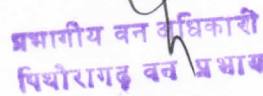 प्रभागीय वन अधिकारी
पिथौरागढ़ वन प्रभाग